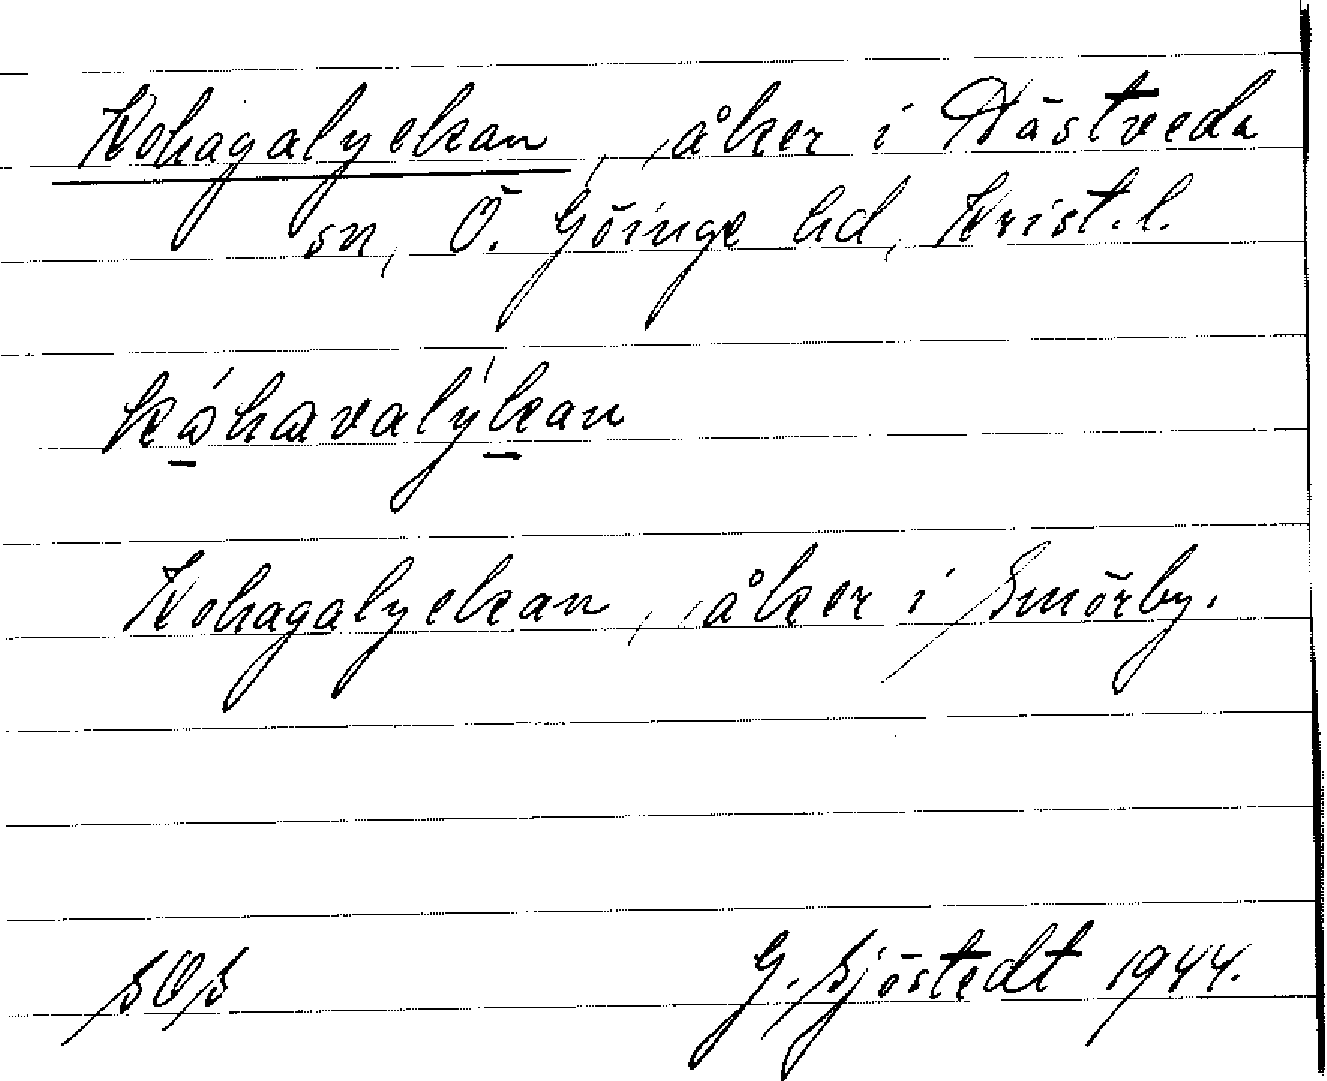 Kohagalyckan, åker i Nästveda
sn, Ö. Göinge hd, Krist. l.
kóhavalýkan
Kohagalyckan, åker i Smörby.
SOS G. Sjöstedt 1944.